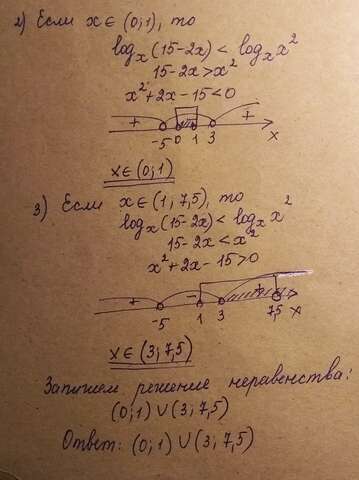 2) Если x ∈ (0;1), то
logₓ(15-2x) < logₓ x²
15-2x > x²
x²+2x-15<0
+ + -5 0 1 3 x
x∈(0;1)
3) Если x∈(1; 7,5), то
logₓ(15-2x) < logₓ x²
15-2x < x²
x²+2x-15>0
+ - + -5 1 3 7,5 x
x∈(3; 7,5)
Запишем решение неравенства:
(0;1) ∪ (3; 7,5)
Ответ: (0;1) ∪ (3; 7,5)